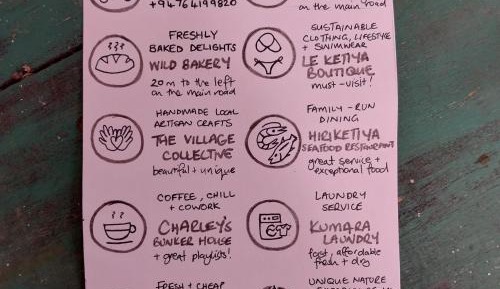 +94764199820
on the main road
FRESHLY
BAKED DELIGHTS
WILD BAKERY
20m to the left
on the main road
SUSTAINABLE
CLOTHING, LIFESTYLE
+ SWIMWEAR
LE KETIYA
BOUTIQUE
must-visit!
HANDMADE LOCAL
ARTISAN CRAFTS
THE VILLAGE
COLLECTIVE
beautiful + unique
FAMILY-RUN
DINING
HIRIKETIYA
SEAFOOD RESTAURANT
great service +
exceptional food
COFFEE, CHILL
+ COWORK
CHARLEY'S
BUNKER HOUSE
+ great playlists!
LAUNDRY
SERVICE
KUMARA
LAUNDRY
fast, affordable
fresh + dry
FRESH + CHEAP
UNIQUE NATURE